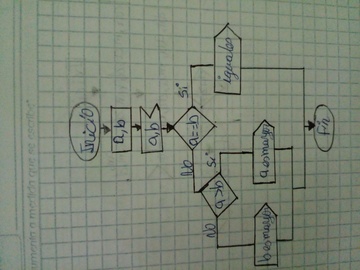 aumenta a medida que se escribe
Inicio
a,b
a,b
No
a==b
Si
No
a>b
Si
iguales
b es mayor
a es mayor
Fin